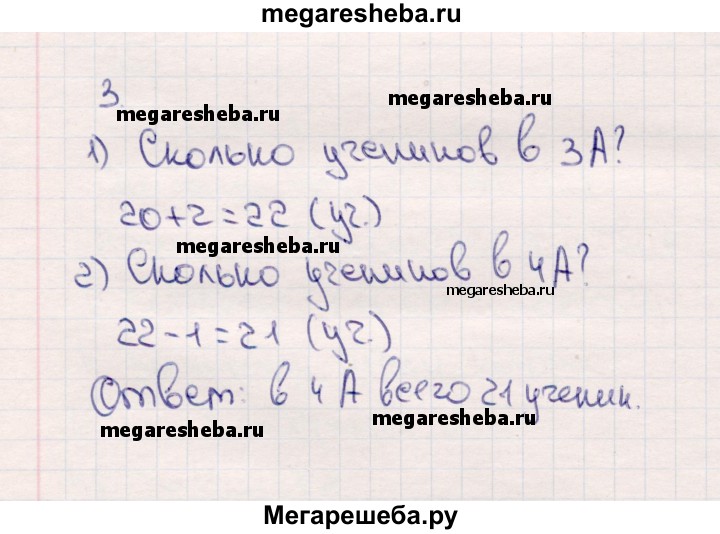 megaresheba.ru
3.
megaresheba.ru
megaresheba.ru
1) Сколько учеников в 3А?
20+2=22 (уч.)
megaresheba.ru
2) Сколько учеников в 4А?
megaresheba.ru
22-1=21 (уч.)
Ответ: в 4 А всего 21 ученик.
megaresheba.ru
megaresheba.ru
Мегарешеба.ру